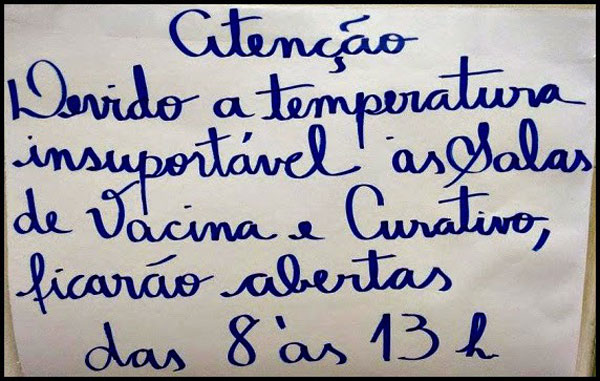 Atenção
Devido a temperatura
insuportável às Salas
de Vacina e Curativo,
ficarão abertas
das 8 às 13 h